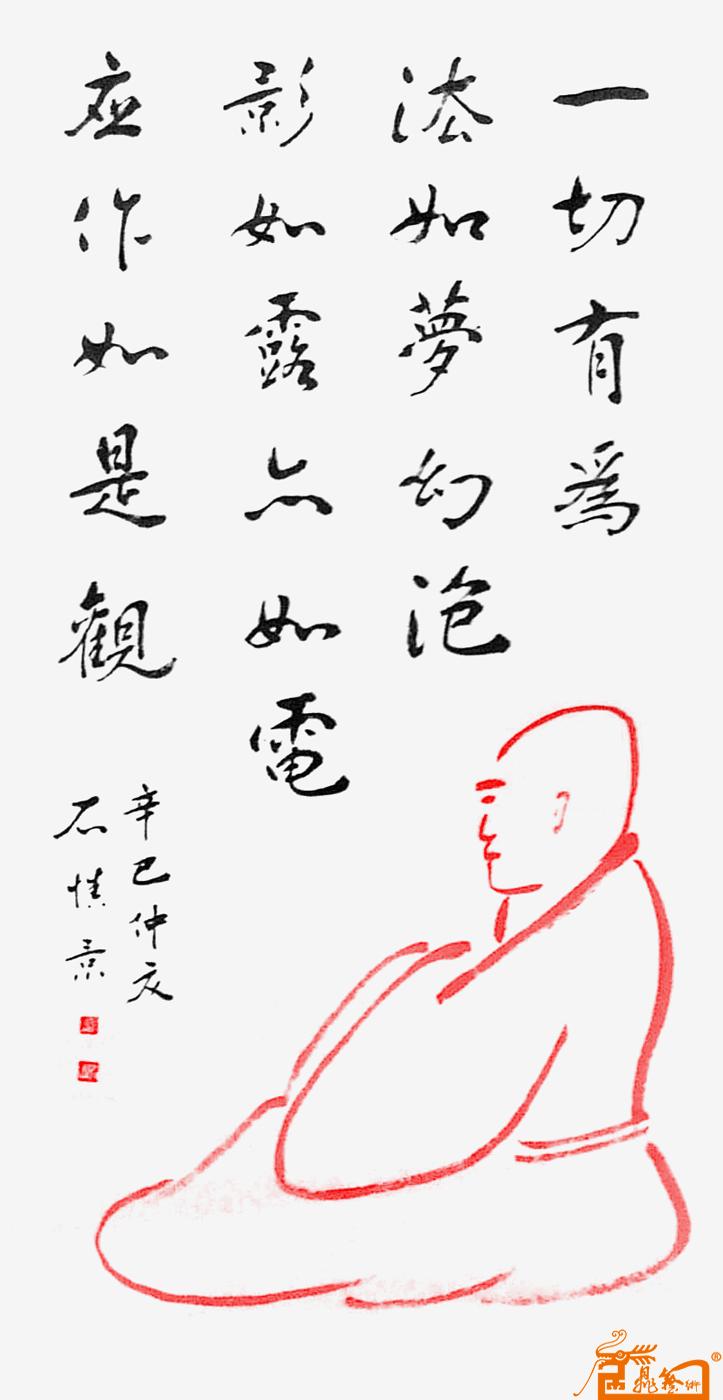 一切有為
法如夢幻泡
影如露亦如電
應作如是觀
辛巳仲夏
石慎景